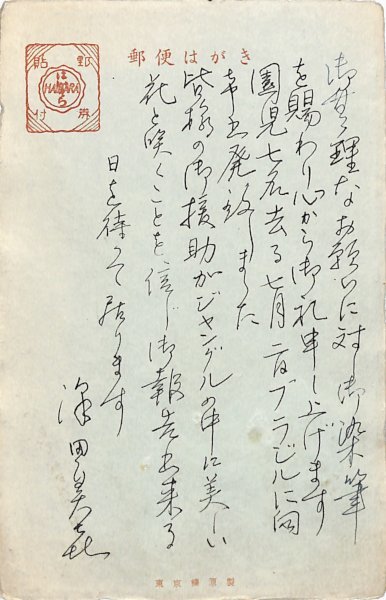 郵便はがき
郵券
貼付
はいばら
HAIBARA
御無理なお願いに対し御染筆
を賜わり心から御礼申し上げます
園児七名去る七月二日ブラジルに向
け出発致しました
皆様の御援助がジャングルの中に美しい
花と咲くことを信じ御報告出来る
日を待って居ります
澤田美喜
東京榛原製